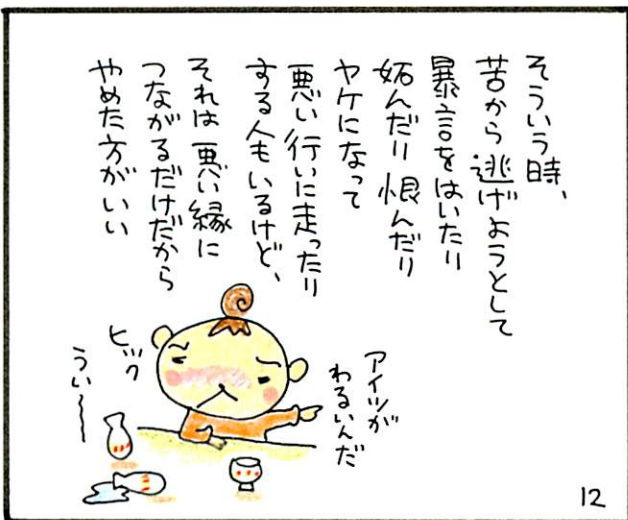 そういう時、
苦から逃げようとして
暴言をはいたり
妬んだり恨んだり
ヤケになって
悪い行いに走ったり
する人もいるけど、
それは悪い縁に
つながるだけだから
やめた方がいい
アイツが
わるいんだ
ヒック
うい〜〜
12